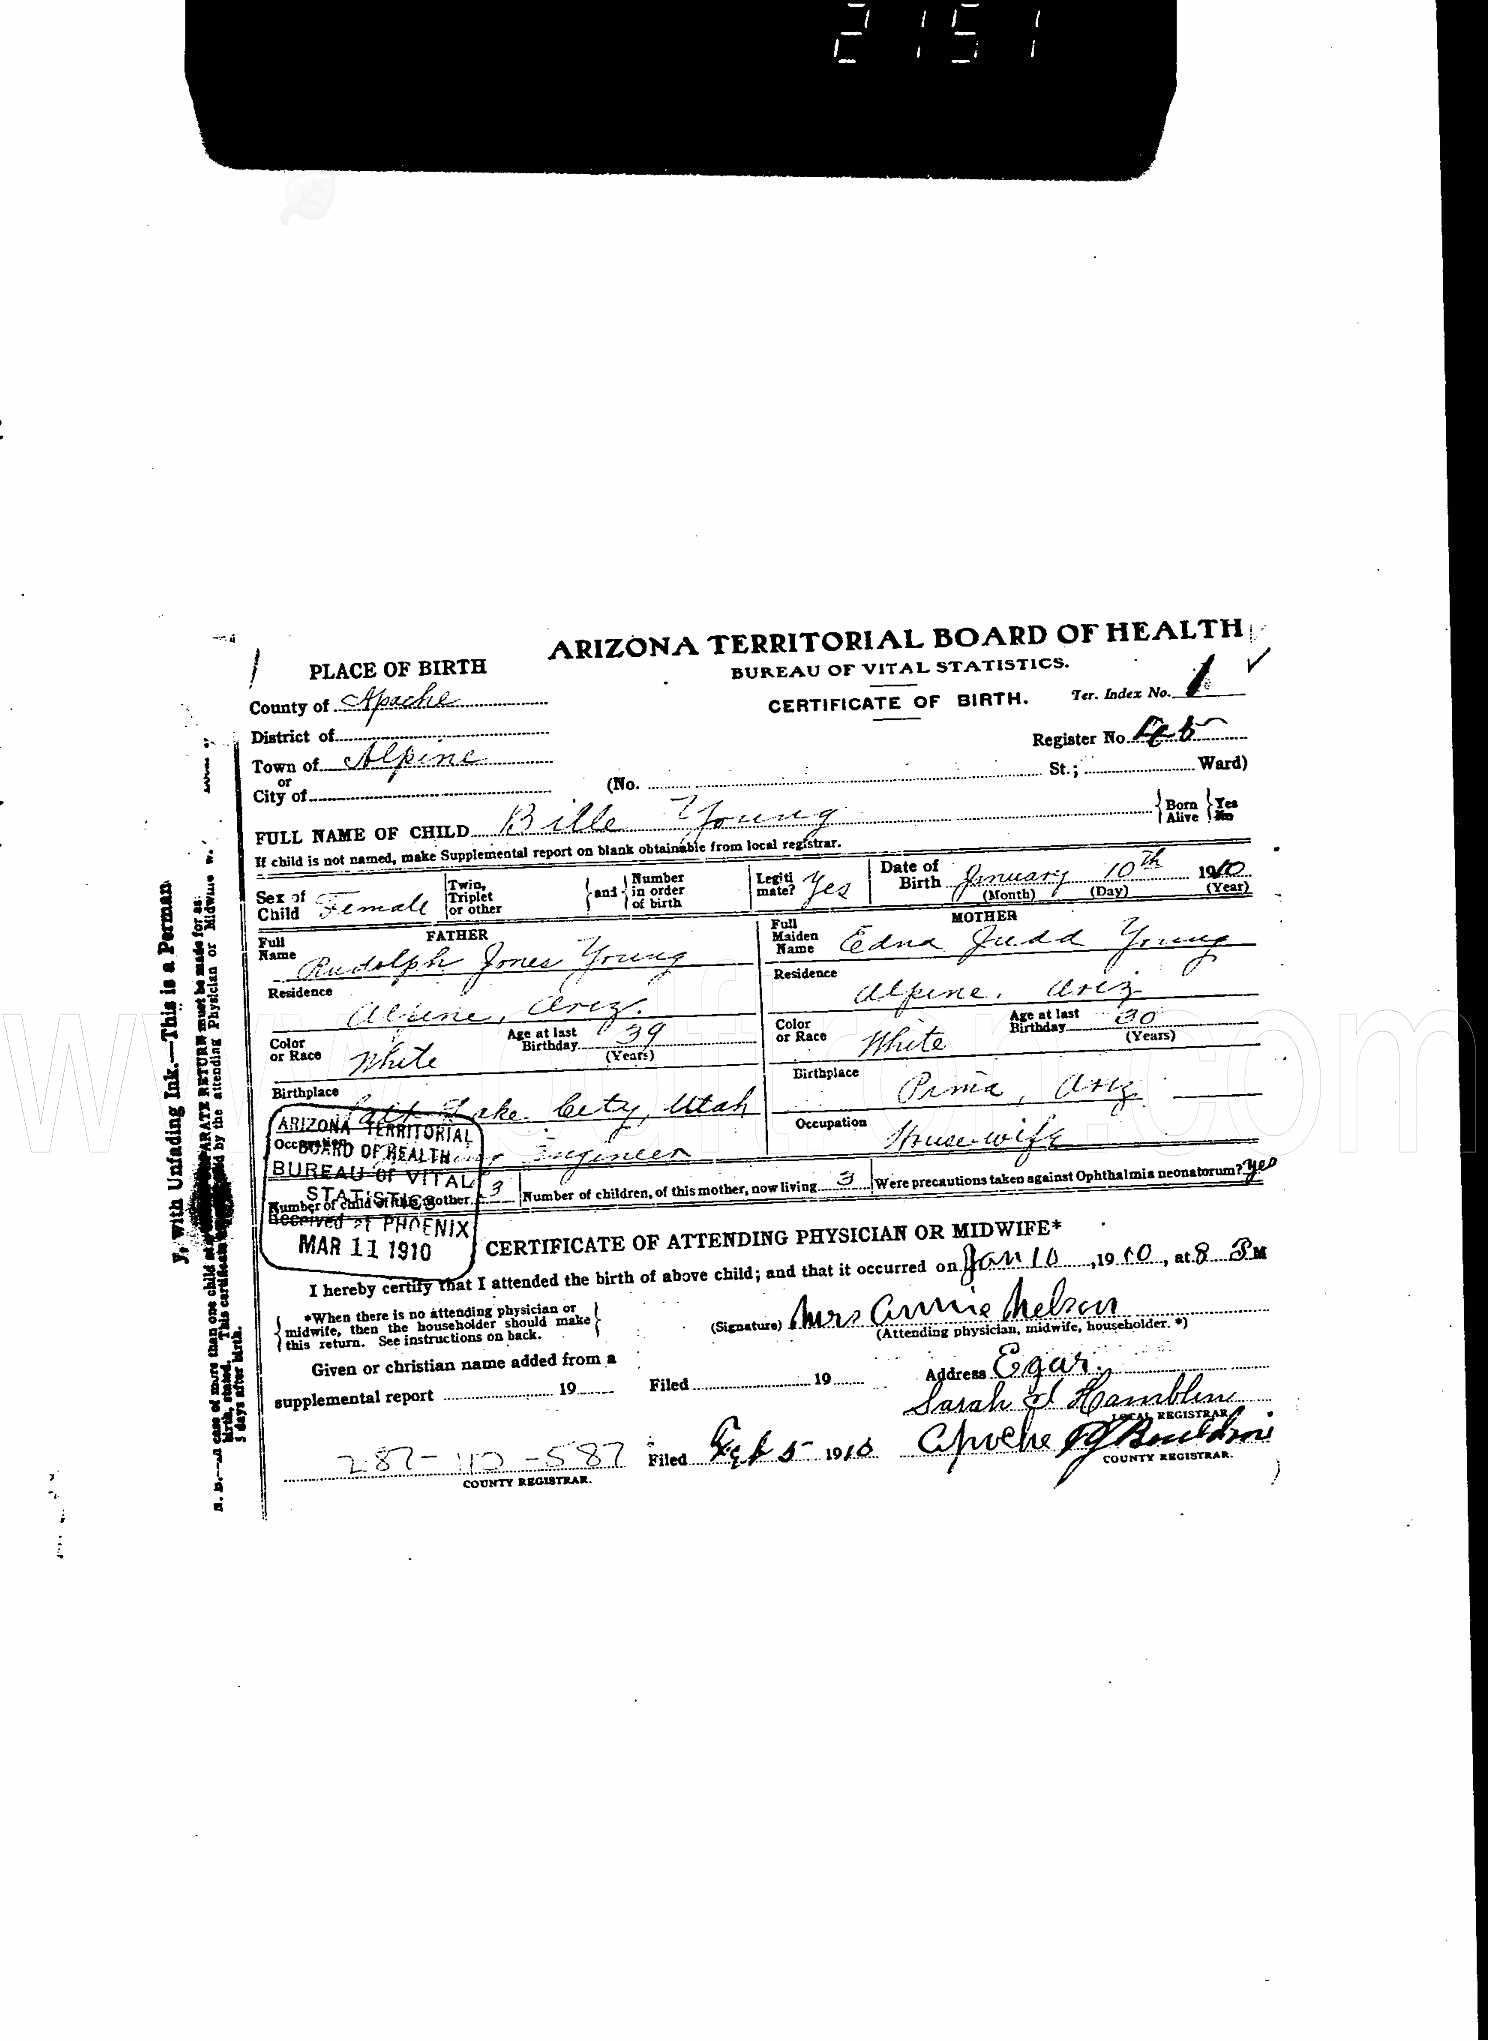 2151
ARIZONA TERRITORIAL BOARD OF HEALTH
BUREAU OF VITAL STATISTICS.
CERTIFICATE OF BIRTH.
Ter. Index No. 1
PLACE OF BIRTH
County of Apache
District of
Register No.
Town of Alpine
or
City of
(No. St.; Ward)
FULL NAME OF CHILD Bille Young
Born Alive Yes No
If child is not named, make Supplemental report on blank obtainable from local registrar.
Sex of Child Female
Twin, Triplet or other
and
Number in order of birth
Legiti mate? Yes
Date of Birth January 10th 1910
(Month) (Day) (Year)
FATHER
Full Name Rudolph Jones Young
Residence Alpine, Ariz.
Color or Race White
Age at last Birthday 39
(Years)
Birthplace Salt Lake City, Utah
Occupation Engineer
MOTHER
Full Maiden Name Edna Judd Young
Residence Alpine, Ariz
Color or Race White
Age at last Birthday 30
(Years)
Birthplace Pima, Ariz
Occupation House-wife
Number of child of this mother 3
Number of children, of this mother, now living 3
Were precautions taken against Ophthalmia neonatorum? Yes
ARIZONA TERRITORIAL
BOARD OF HEALTH
BUREAU OF VITAL
STATISTICS
Received at PHOENIX
MAR 11 1910
CERTIFICATE OF ATTENDING PHYSICIAN OR MIDWIFE*
I hereby certify that I attended the birth of above child; and that it occurred on Jan 10, 1910, at 8 P M
*When there is no attending physician or
midwife, then the householder should make
this return. See instructions on back.
(Signature) Mrs Annie Nelson
(Attending physician, midwife, householder. *)
Given or christian name added from a
supplemental report 19
Filed 19
Address Egar.
Sarah J Hamblin
LOCAL REGISTRAR
287-112-587
COUNTY REGISTRAR.
Filed Feb 5 1910
Apache
COUNTY REGISTRAR.
y, with Unfading Ink.—This is a Perman
N. B.—In case of more than one child at a
SEPARATE RETURN must be made for
birth, stated. This certificate
by the attending Physician or Midwife
5 days after birth.